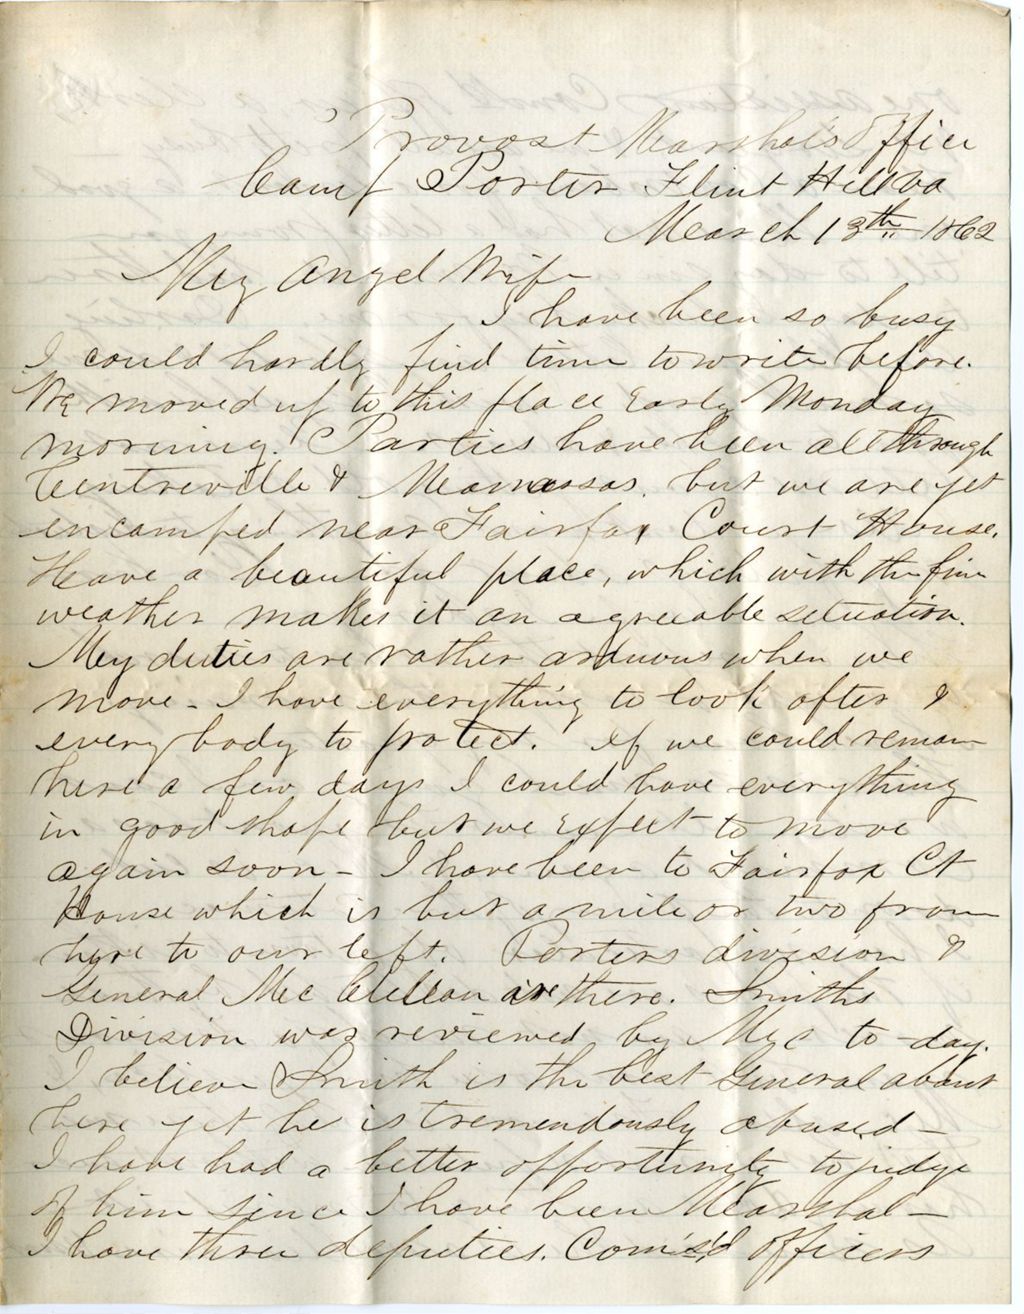 Provost Marshals Office
Camp Porter Flint Hill Va
March 13th 1862
My Angel Wife
I have been so busy
I could hardly find time to write before.
We moved up to this place Early Monday
morning. Parties have been all through
Centreville & Manassas. but we are yet
encamped near Fairfax Court House.
Have a beautiful place, which with the fine
weather makes it an agreeable situation.
My duties are rather arduous when we
move - I have everything to look after &
everybody to protect. If we could remain
here a few days I could have everything
in good shape but we Expect to move
again soon - I have been to Fairfax Ct
House which is but a mile or two from
here to our left. Porters division &
General Mc Clellan are there. Smiths
Division was reviewed by Mc to-day.
I believe Smith is the best General about
here yet he is tremendously abused -
I have had a better opportunity to judge
of him since I have been Marshal -
I have three deputies. Com's'd officers